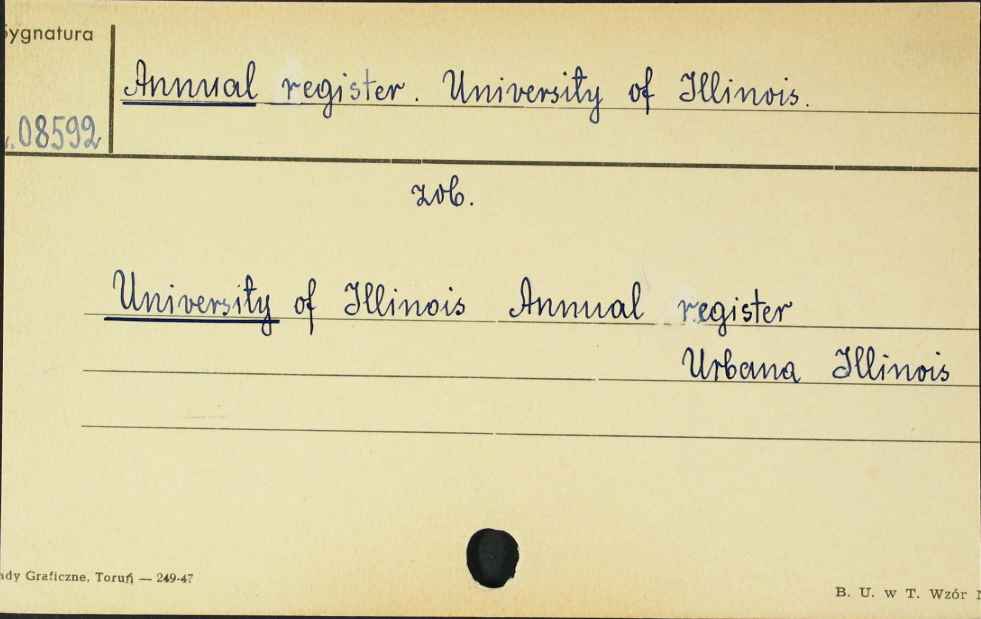 Sygnatura
Annual register. University of Illinois.
08592
zob.
University of Illinois Annual register
Urbana Illinois
ady Graficzne, Toruń — 249-47
B. U. w T. Wzór